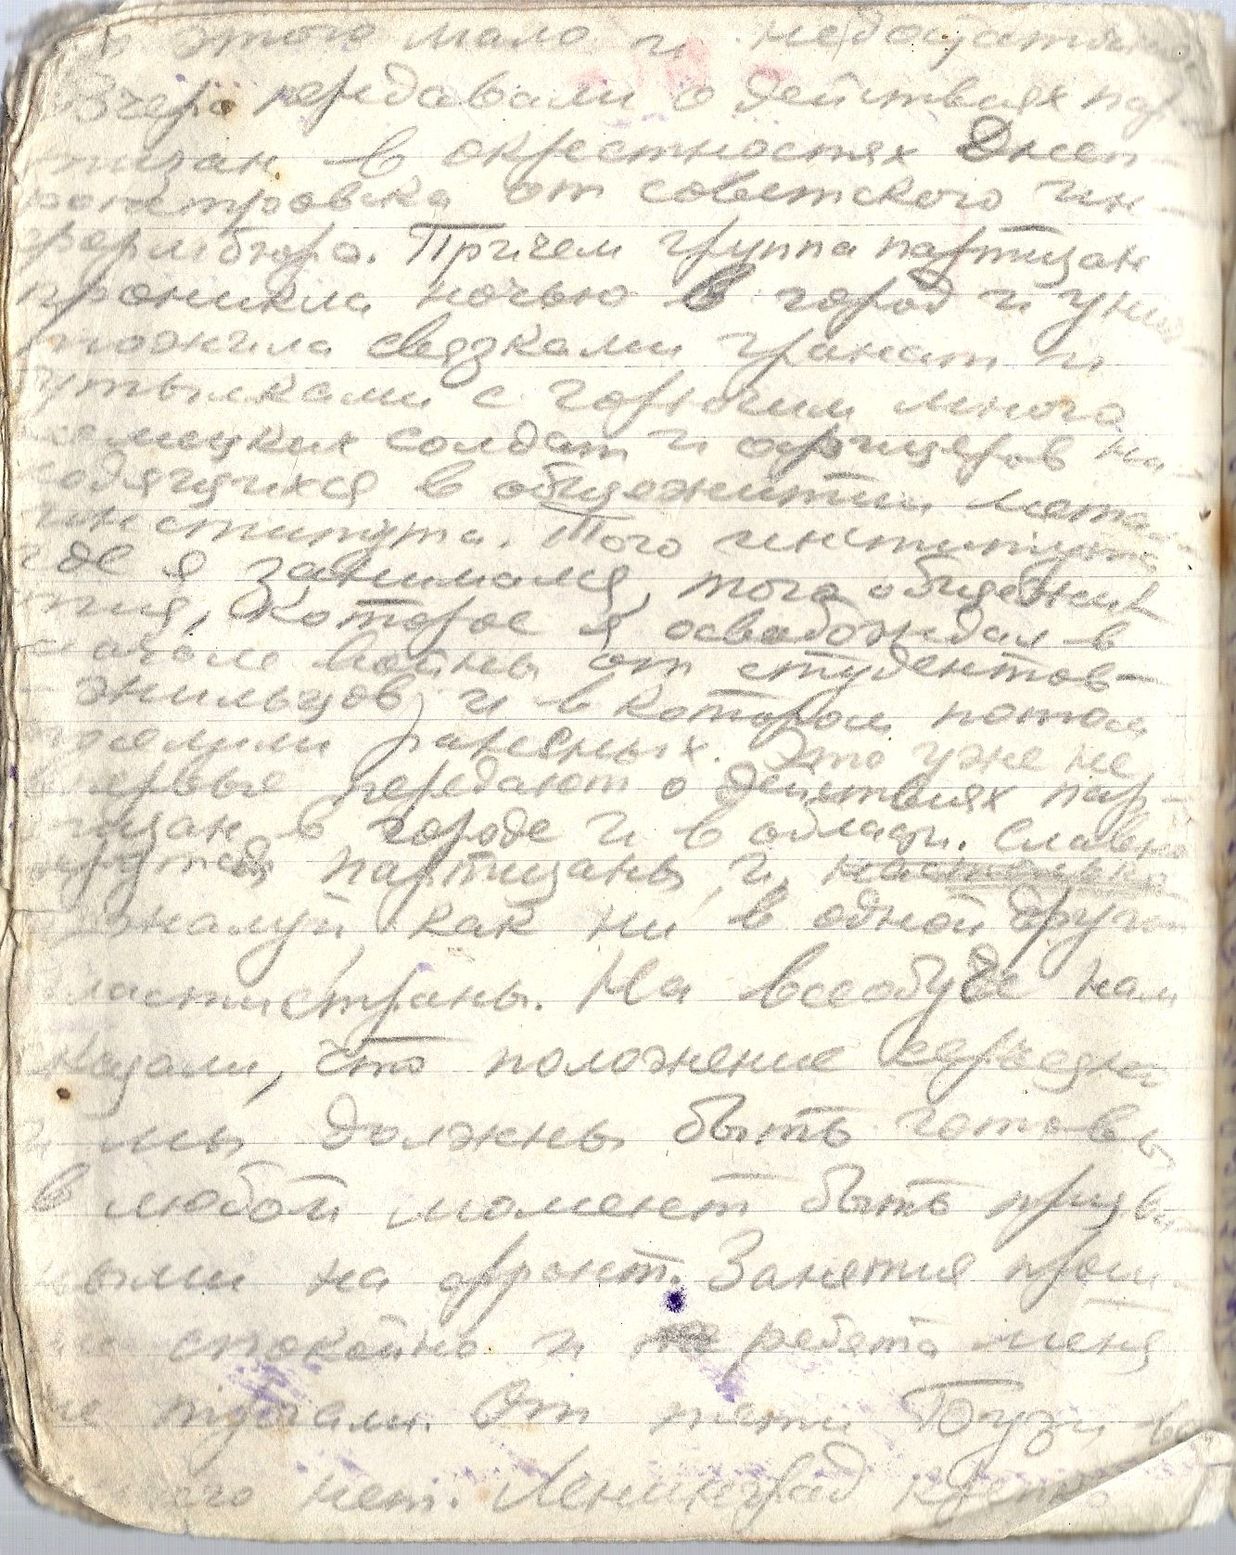 этого мало и недостаточно
Вчера передавали о действиях пар
тизан в окрестностях Днеп-
ропетровска от советского ин-
формбюро. Причем группа партизан
проникла ночью в город и унич
тожила связками гранат и
утылками с горючим много
немецких солдат и офицеров на-
ходящихся в общежитии мета
института. Того института
где я занимался, того общежи
тия, которое я освобождал в
начале войны от студентов-
- жильцов, и в котором потом
поселили раненых. Это уже не
впервые передают о действиях пар-
тизан в городе и в области. Славно
партизаны, и настолько
пожалуй, как ни в одной другой
бласти страны. На всеобуче нам
сказали, что положение серьезно
и мы должны быть готовы
в любой момент быть призва-
ными на фронт. Занятия прош-
ли спокойно и ребята меня
не трогали. От тети Бузи
ничего нет. Ленинград крепко